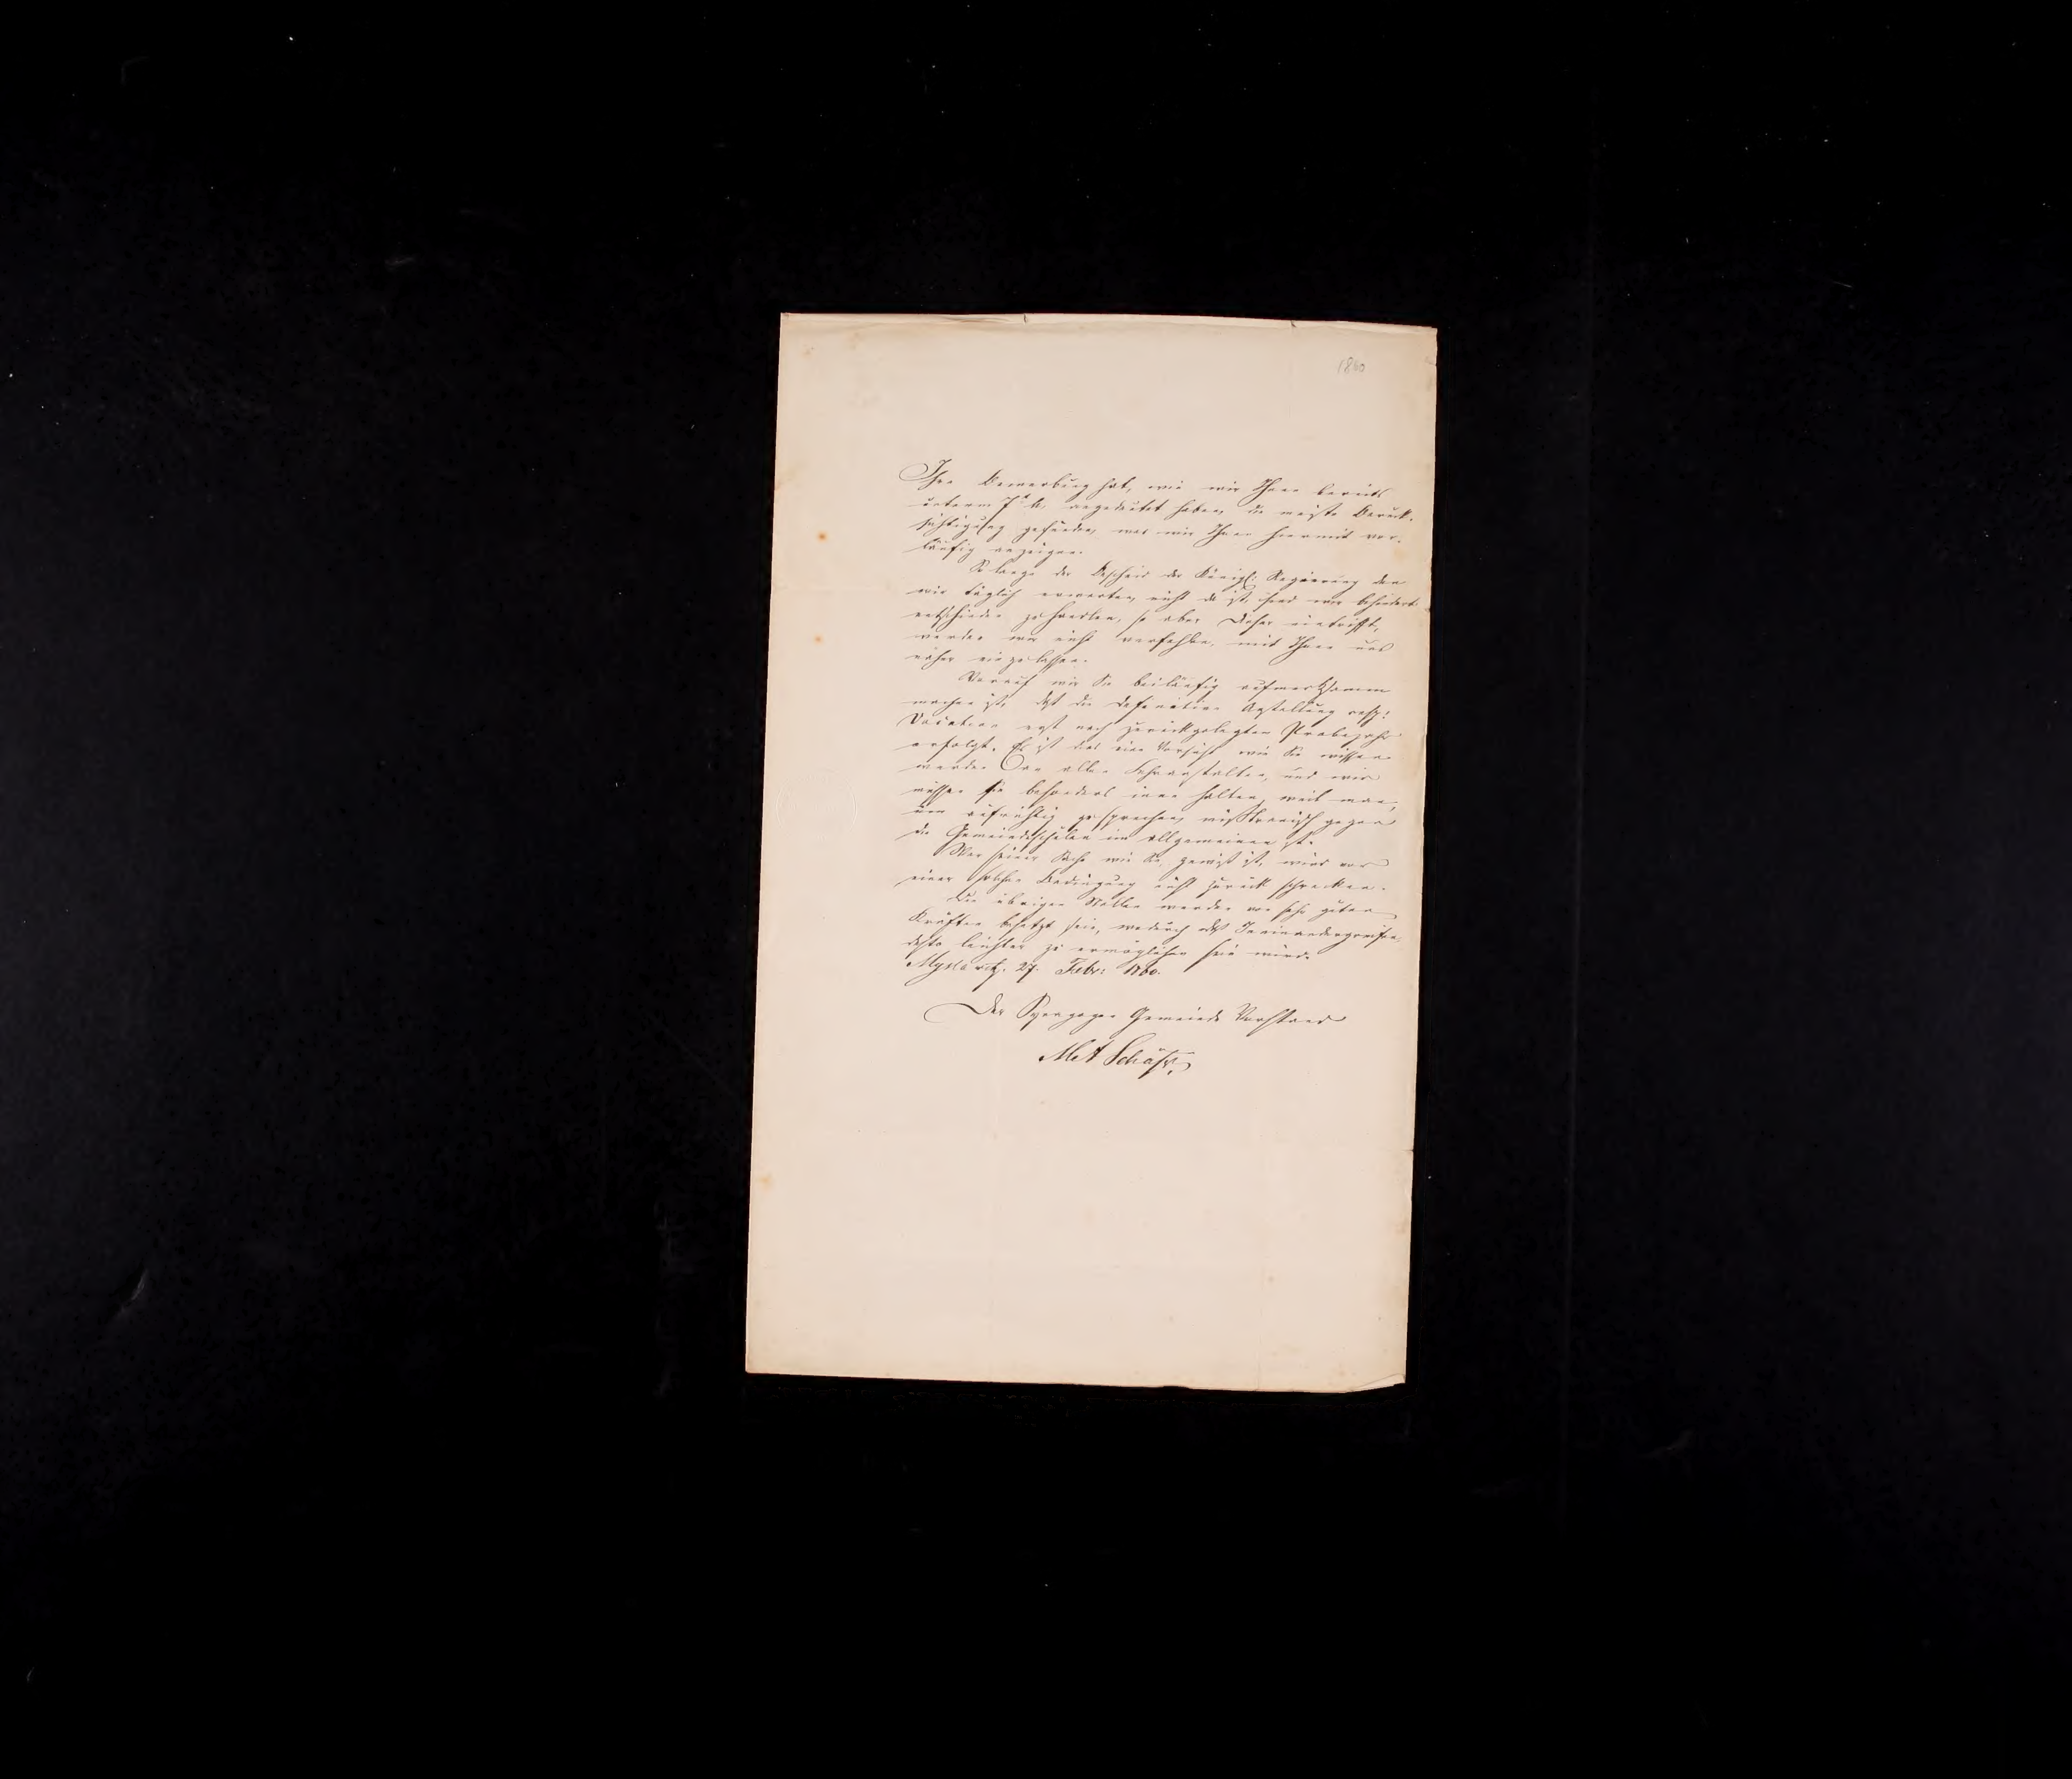 1860
Ihre Bewerbung hat, wie wir Ihnen bereits
unterm 7t angedeutet haben, die meiste Berück-
sichtigung gefunden, was wir Ihnen hiermit vor-
läufig anzeigen.
So lange der Bescheid der Königl: Regierung den
wir täglich erwarten, nicht da ist, sind wir behindert
entschieden zu handeln, so aber dieser eintrifft,
werden wir nicht verfehlen, mit Ihnen uns
näher einzulassen.
Worauf wir Sie beiläufig aufmerksamm
machen ist, daß die definitive Anstellung resp:
Vocation erst nach zurückgelegten Probejahr
erfolgt. Es ist das eine Vorsicht wie Sie wissen
werden an allen Lehranstalten, und wir
müssen sie besonders inne halten, weil man,
um aufrichtig zu sprechen, mißtrauisch gegen
die Gemeindeschulen im allgemeinen ist.
Wer seiner Sache wie Sie, gewiß ist, wird vor
einer solchen Bedingung nicht zurück schrecken.
Die übrigen Stellen werden von sehr guten
Kräften besetzt sein, wodurch das Ineinandergreifen
desto leichter zu ermöglichen sein würde
Myslowitz. 27. Febr: 1860.
Der Synagogen Gemeinde Vorstand